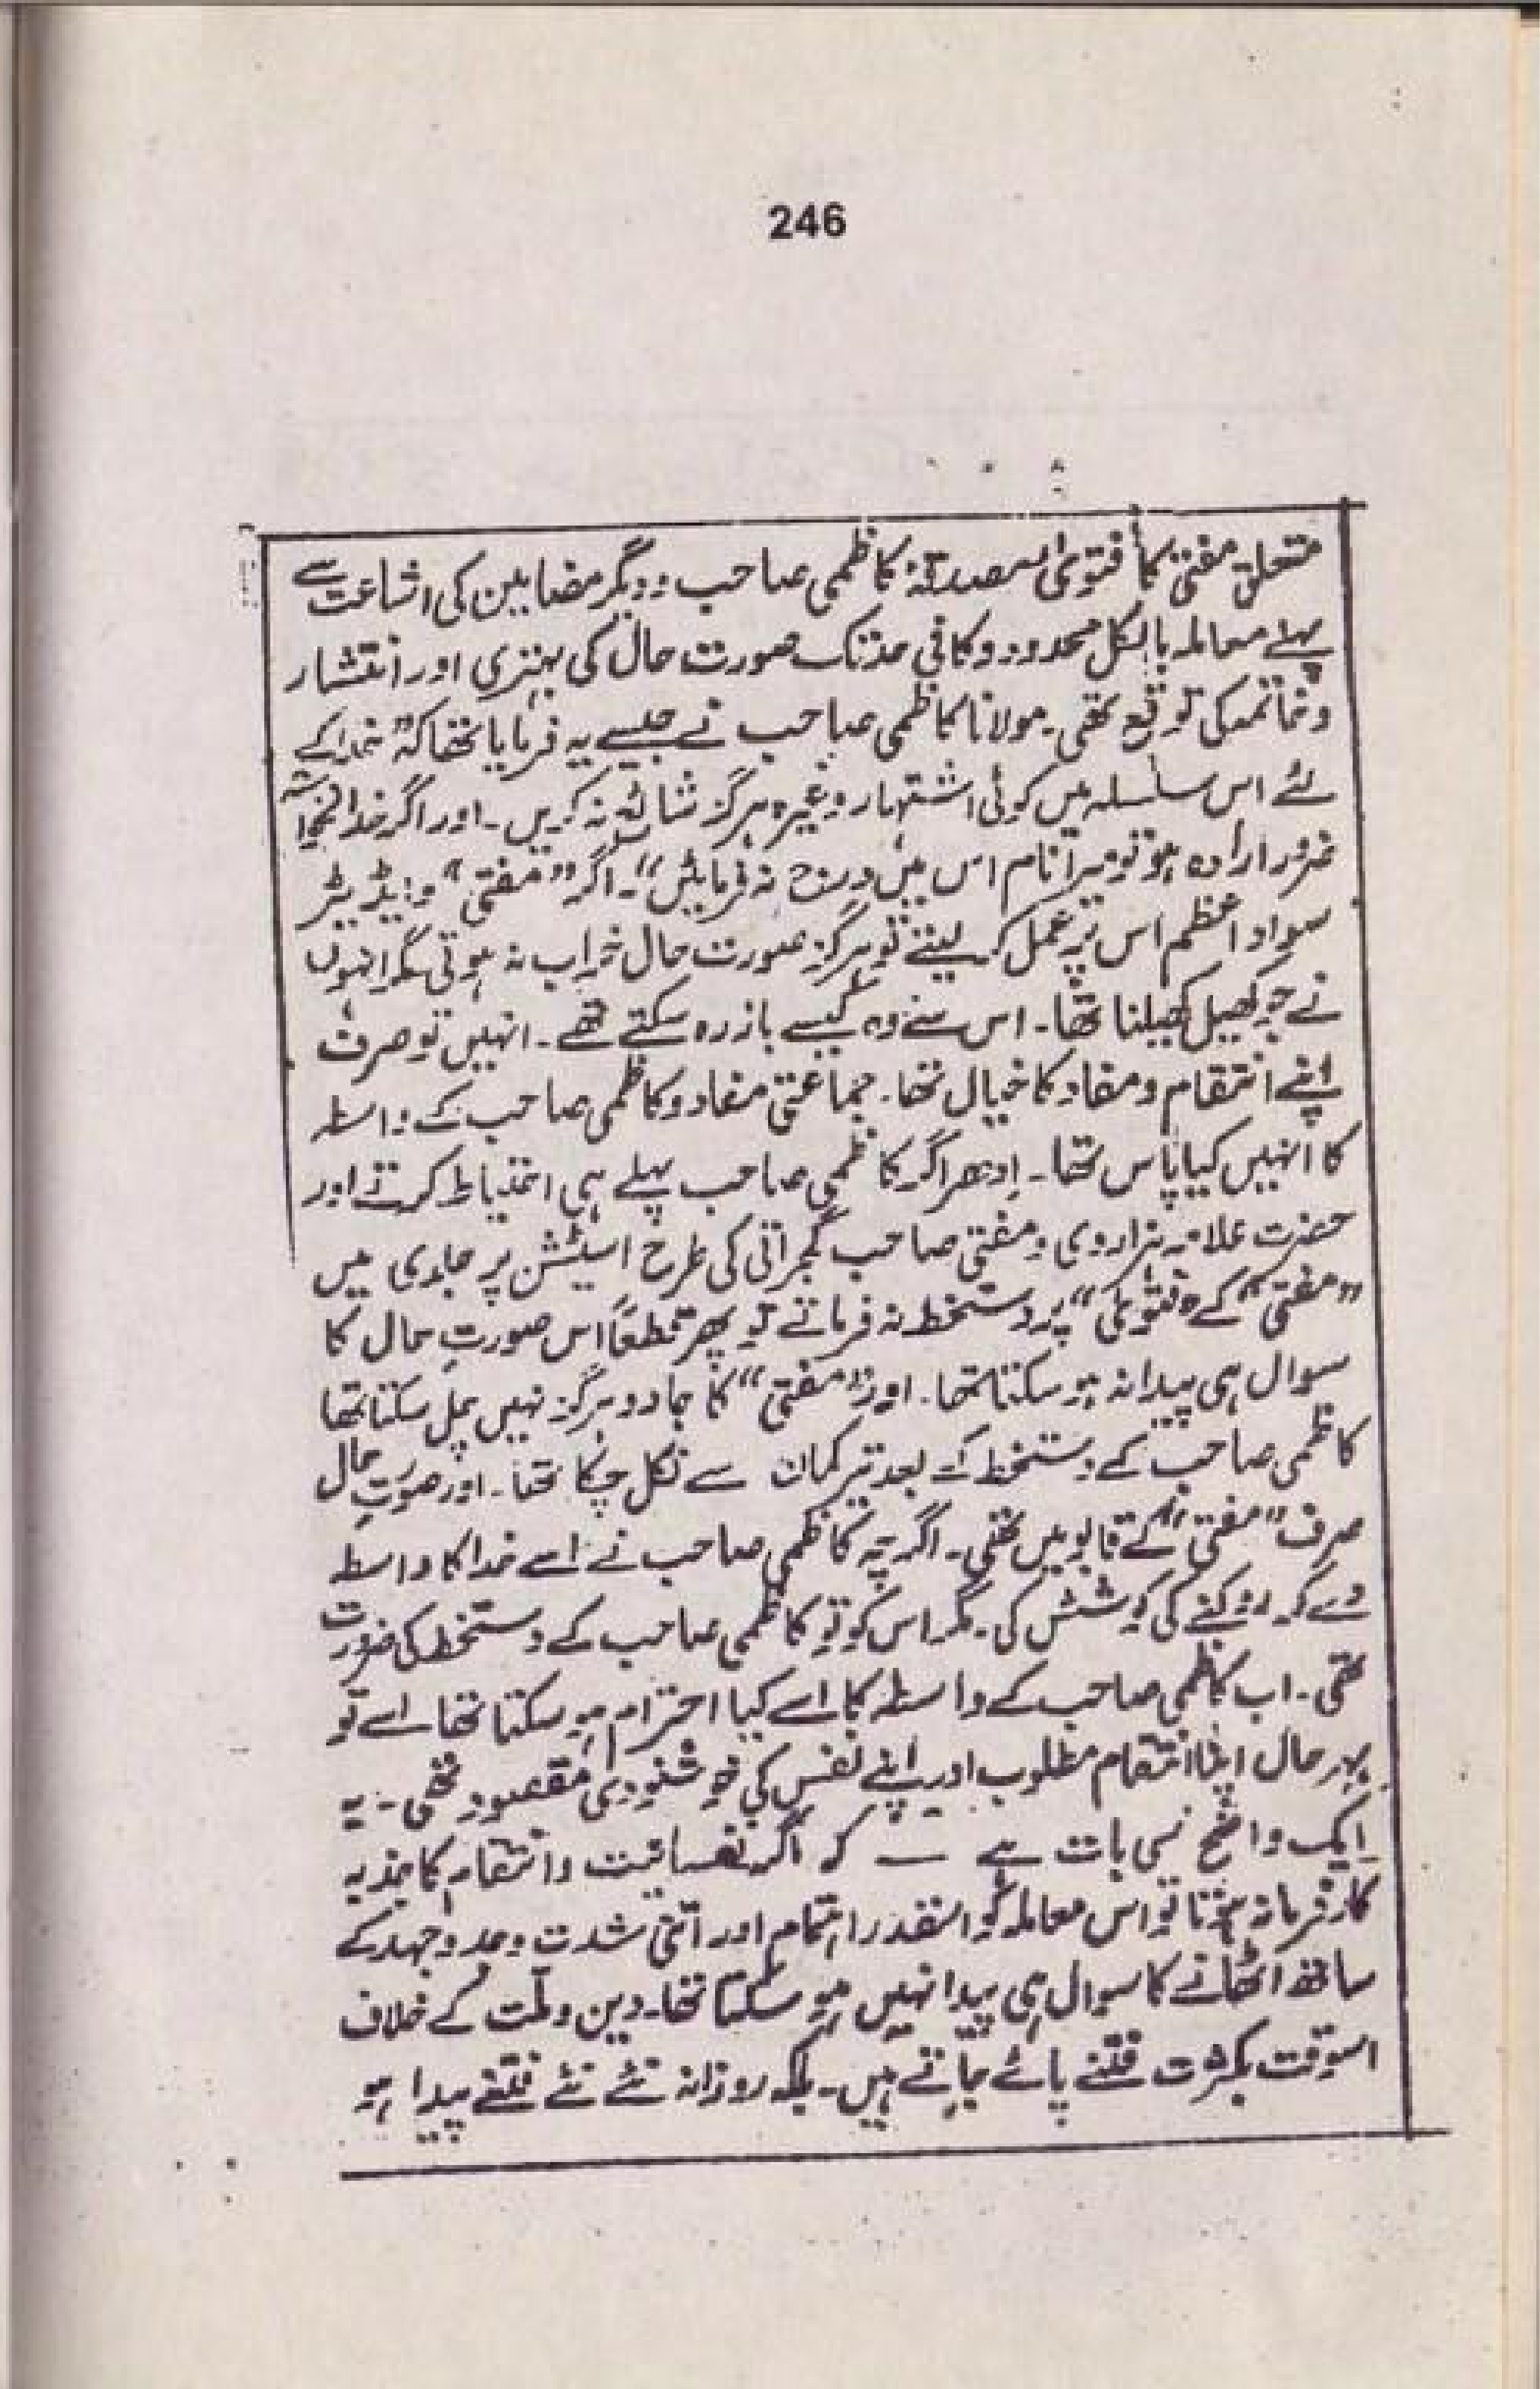 246
متعلق مفتی کا فتویٰ مصدقہ کاظمی صاحب و دیگر مضامین کی اشاعت سے
پہلے معاملہ بالکل محدود و کافی حدتک صورت حال کی بہتری اور انتشار
و خاتمہ کی توقع تھی۔ مولانا کاظمی صاحب نے جیسے یہ فرمایا تھا کہ "خدا کے
لئے اس سلسلہ میں کوئی اشتہار وغیرہ ہرگز شائع نہ کریں۔ اور اگر خدانخواستہ
ضرور ارادہ ہو تو میرا نام اس میں درج نہ فرمائیں"۔ اگر "مفتی" و ایڈیٹر
سواد اعظم اس پر عمل کر لیتے تو ہرگز صورت حال خراب نہ ہوتی مگر انہوں
نے جو کھیل کھیلنا تھا۔ اس سے وہ کیسے باز رہ سکتے تھے۔ انہیں تو صرف
اپنے انتقام و مفاد کا خیال تھا۔ جماعتی مفاد و کاظمی صاحب کے واسطہ
کا انہیں کیا پاس تھا۔ اِدھر اگر کاظمی صاحب پہلے ہی احتیاط کرتے اور
حضرت علامہ ہزاروی و مفتی صاحب گجراتی کی طرح اسٹیشن پر جلدی میں
"مفتی" کے "فتویٰ" پر دستخط نہ فرماتے تو پھر قطعاً اس صورتِ حال کا
سوال ہی پیدا نہ ہو سکتا تھا۔ اور "مفتی" کا جادو ہرگز نہیں چل سکتا تھا
کاظمی صاحب کے دستخط کے بعد تیر کمان سے نکل چکا تھا۔ اور صورتِ حال
صرف "مفتی" کے قابو میں تھی۔ اگرچہ کاظمی صاحب نے اسے خدا کا واسطہ
دے کر روکنے کی کوشش کی۔ مگر اس کو تو کاظمی صاحب کے دستخط کی ضرورت
تھی۔ اب کاظمی صاحب کے واسطہ کا اسے کیا احترام ہو سکتا تھا اسے تو
بہر حال اپنا انتقام مطلوب اور اپنے نفس کی خوشنودی مقصود تھی۔ یہ
ایک واضح سی بات ہے — کہ اگر نفسانیت و انتقام کا جذبہ
کارفرما نہ ہوتا تو اس معاملہ کو اسقدر اہتمام اور اتنی شدت و جدوجہد کے
ساتھ اٹھانے کا سوال ہی پیدا نہیں ہو سکتا تھا۔ دین و ملت کے خلاف
اسوقت بکثرت فتنے پائے جاتے ہیں۔ بلکہ روزانہ نئے نئے فتنے پیدا ہو